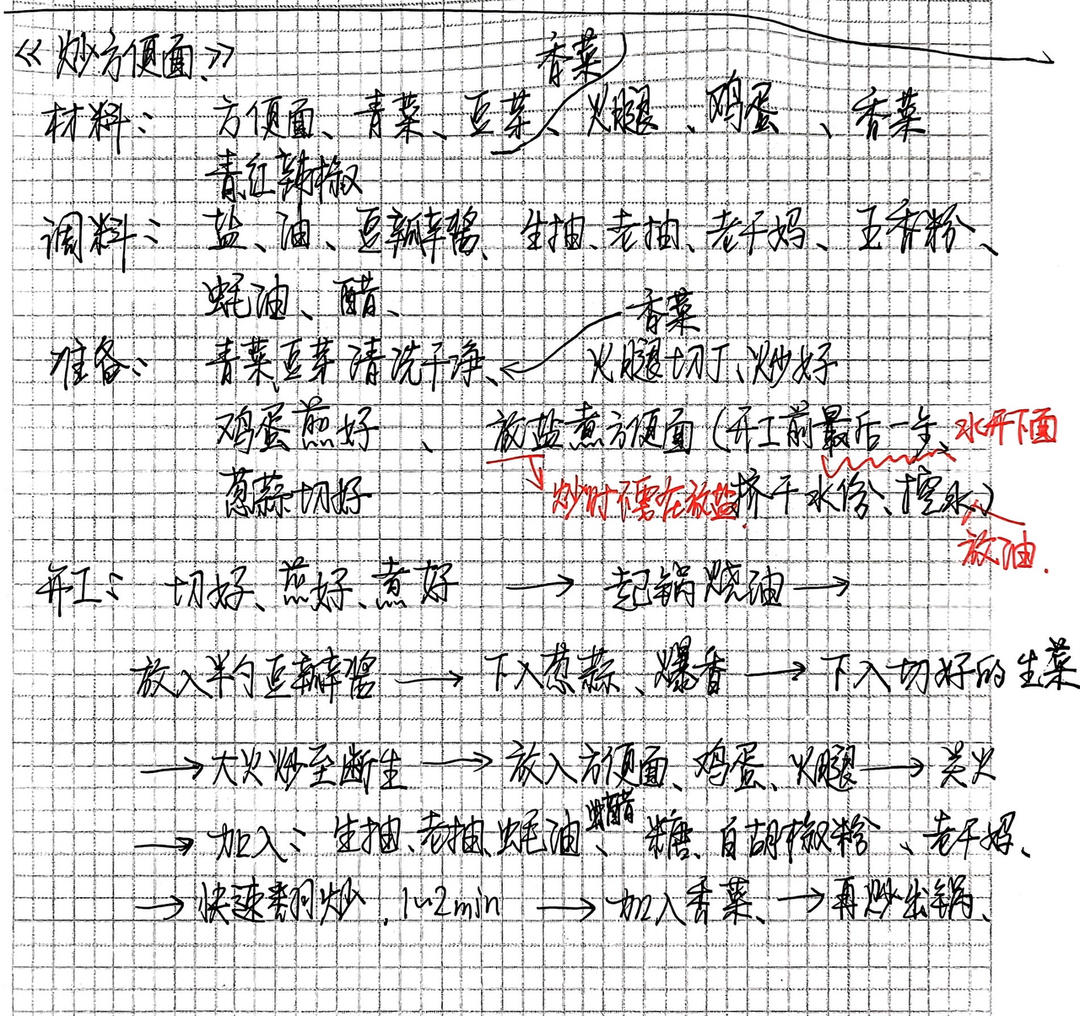 《炒方便面》
香菜
材料：方便面、青菜、豆芽、火腿、鸡蛋、香菜
青红辣椒
调料：盐、油、豆瓣酱、生抽、老抽、老干妈、五香粉、
蚝油、醋、
香菜
准备：青菜豆芽清洗干净、火腿切丁、炒好
鸡蛋煎好、放盐煮方便面（开工前最后一步、水开下面
葱蒜切好 炒时不需在放盐. 挤干水份、控水）
放油.
开工：切好、煎好、煮好 → 起锅烧油 →
放入半勺豆瓣酱 → 下入葱蒜、爆香 → 下入切好的生菜
→ 大火炒至断生 → 放入方便面、鸡蛋、火腿 → 关火
醋
→ 加入：生抽、老抽、蚝油、糖、白胡椒粉、老干妈、
→ 快速翻炒，1~2min → 加入香菜、→ 再炒出锅、